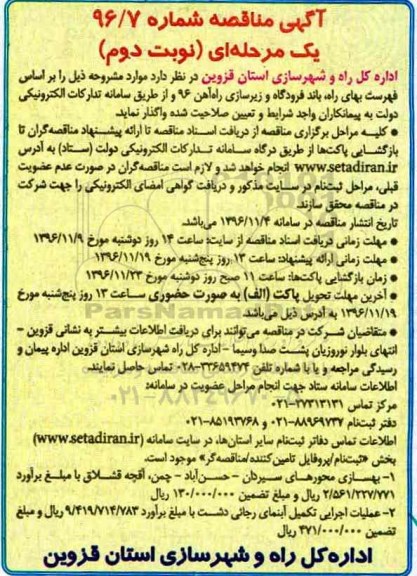 آگهی مناقصه شماره ۹۶/۷
یک مرحله‌ای (نوبت دوم)
اداره کل راه و شهرسازی استان قزوین در نظر دارد موارد مشروحه ذیل را بر اساس
فهرست بهای راه، باند فرودگاه و زیرسازی راه‌آهن ۹۶ و از طریق سامانه تدارکات الکترونیکی
دولت به پیمانکاران واجد شرایط و تعیین صلاحیت شده واگذار نماید.
● کلیه مراحل برگزاری مناقصه از دریافت اسناد مناقصه تا ارائه پیشنهاد مناقصه‌گران تا
بازگشایی پاکت‌ها از طریق درگاه سامانه تدارکات الکترونیکی دولت (ستاد) به آدرس
www.setadiran.ir انجام خواهد شد و لازم است مناقصه‌گران در صورت عدم عضویت
قبلی، مراحل ثبت‌نام در سایت مذکور و دریافت گواهی امضای الکترونیکی را جهت شرکت
در مناقصه محقق سازند.
تاریخ انتشار مناقصه در سامانه ۱۳۹۶/۱۱/۴ می‌باشد.
● مهلت زمانی دریافت اسناد مناقصه از سایت: ساعت ۱۴ روز دوشنبه مورخ ۱۳۹۶/۱۱/۹
● مهلت زمانی ارائه پیشنهاد: ساعت ۱۳ روز پنج‌شنبه مورخ ۱۳۹۶/۱۱/۱۹
● زمان بازگشایی پاکت‌ها: ساعت ۱۱ صبح روز دوشنبه مورخ ۱۳۹۶/۱۱/۲۳
● آخرین مهلت تحویل پاکت (الف) به صورت حضوری ساعت ۱۳ روز پنج‌شنبه مورخ
۱۳۹۶/۱۱/۱۹ به آدرس ذیل می‌باشد.
● متقاضیان شرکت در مناقصه می‌توانند برای دریافت اطلاعات بیشتر به نشانی قزوین -
انتهای بلوار نوروزیان پشت صدا و سیما - اداره کل راه شهرسازی استان قزوین اداره پیمان و
رسیدگی مراجعه و یا با شماره تلفن ۳۳۶۵۹۴۷۴-۰۲۸ تماس حاصل نمایند.
اطلاعات سامانه ستاد جهت انجام مراحل عضویت در سامانه:
مرکز تماس ۲۷۳۱۳۱۳۱-۰۲۱
دفتر ثبت‌نام ۸۸۹۶۹۷۳۷-۰۲۱ و ۸۵۱۹۳۷۶۸-۰۲۱
اطلاعات تماس دفاتر ثبت‌نام سایر استان‌ها، در سایت سامانه (www.setadiran.ir)
بخش «ثبت‌نام/پروفایل تامین‌کننده/مناقصه‌گر» موجود است.
۱- بهسازی محورهای سیردان - حسن‌آباد - چمن، آقچه قشلاق با مبلغ برآورد
۲/۵۶۱/۲۲۷/۷۷۱ ریال و مبلغ تضمین ۱۳۰/۰۰۰/۰۰۰ ریال
۲- عملیات اجرایی تکمیل آبنمای رجائی دشت با مبلغ برآورد ۹/۴۱۹/۷۱۴/۷۸۳ ریال و مبلغ
تضمین ۴۷۱/۰۰۰/۰۰۰ ریال
اداره‌کل راه و شهرسازی استان قزوین